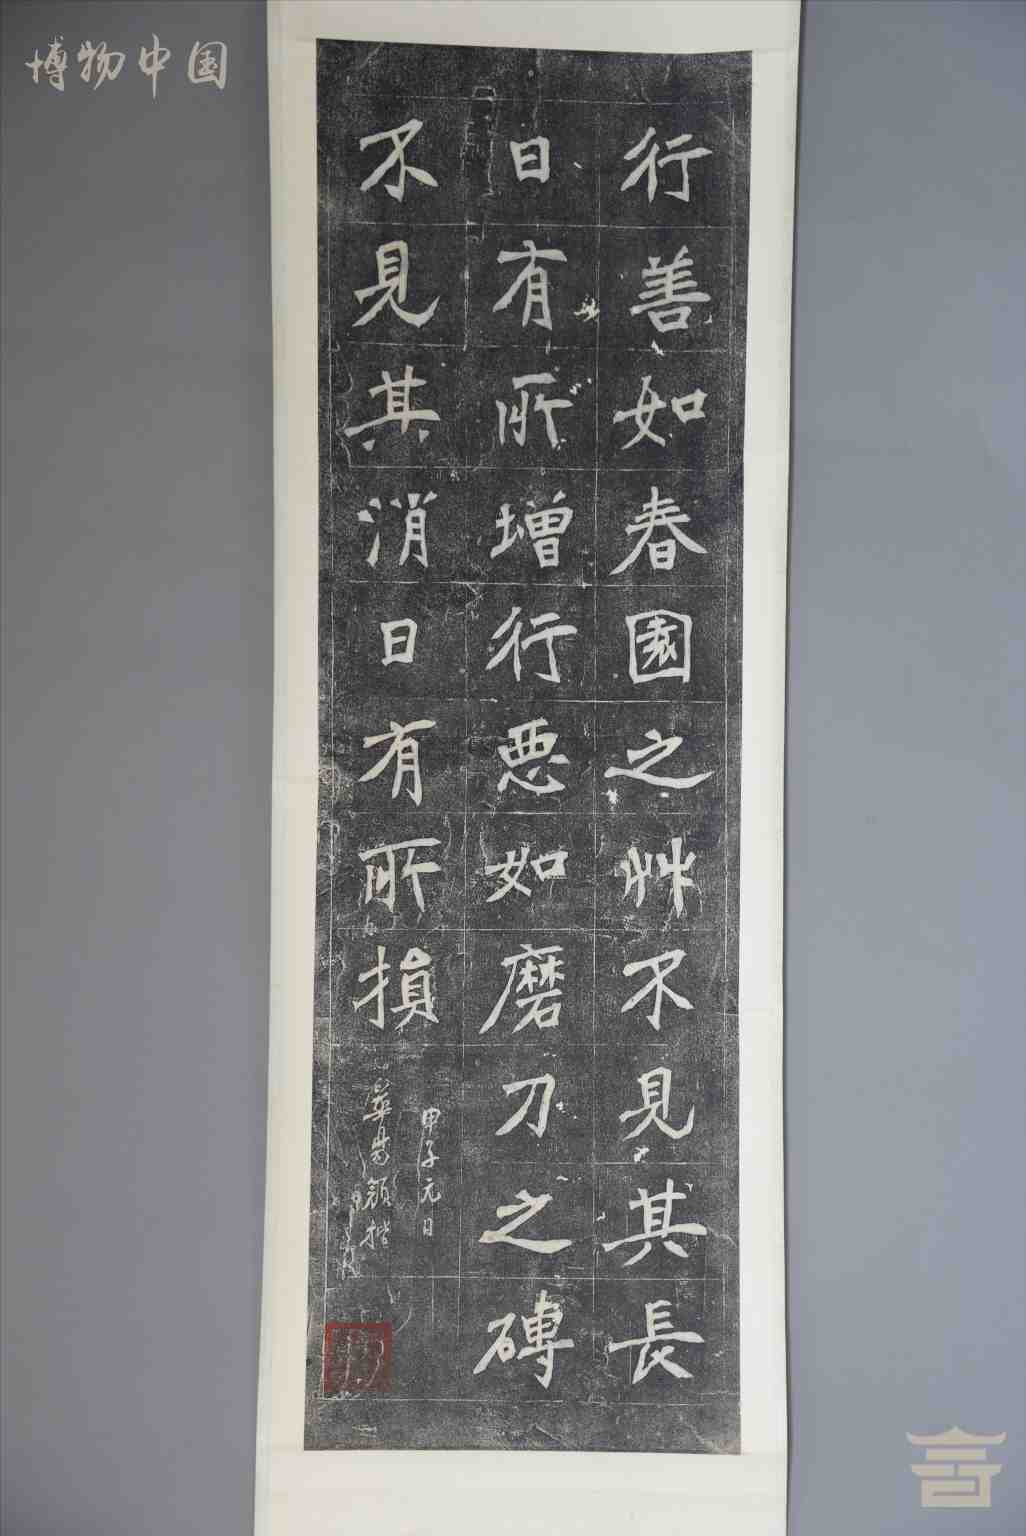 博物中国
行善如春園之艸不見其長
日有所增行悪如磨刀之磚
不見其消日有所損
甲子元日